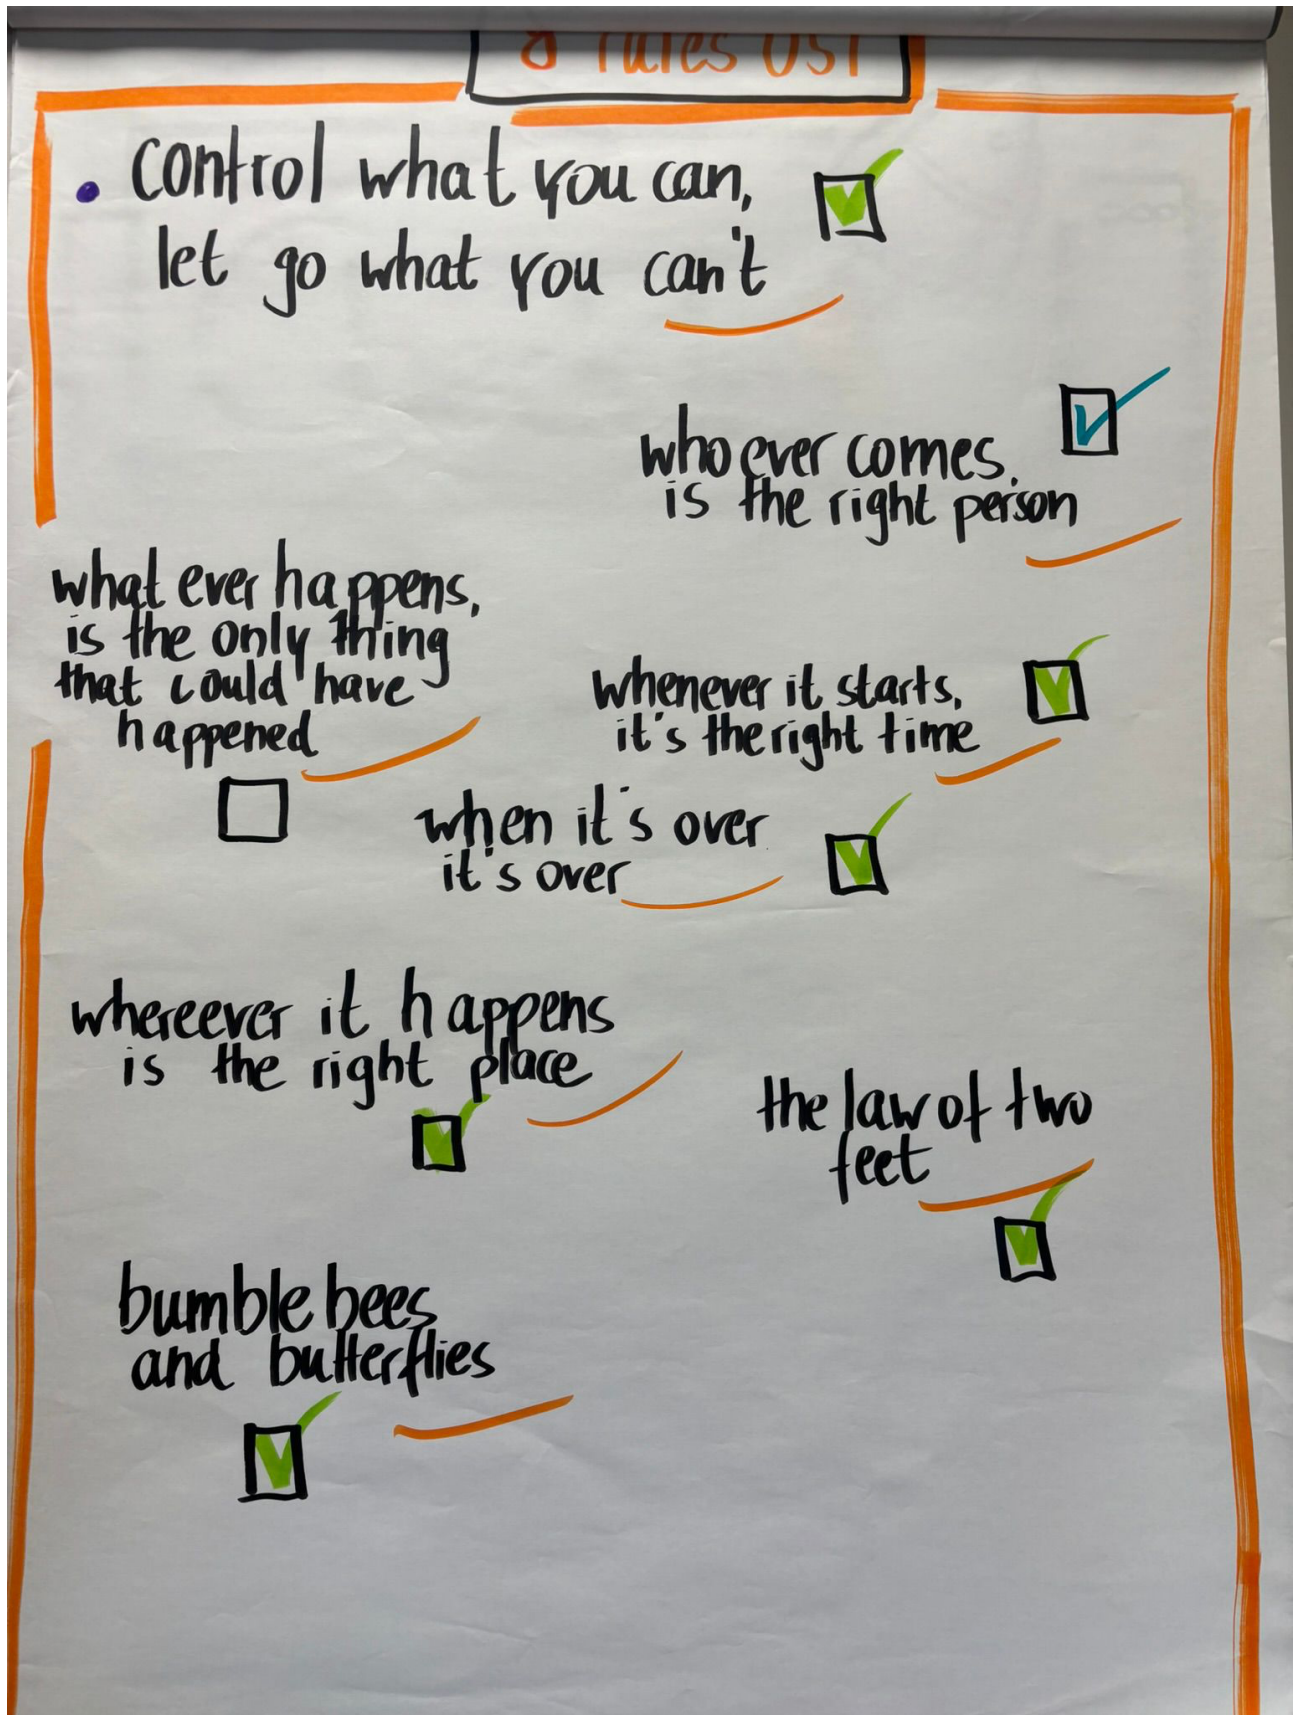 8 rules OST
• control what you can,
let go what you can't
who ever comes.
is the right person
what ever happens,
is the only thing
that could have
happened
whenever it starts,
it's the right time
when it's over
it's over
whereever it happens
is the right place
the law of two
feet
bumble bees
and butterflies